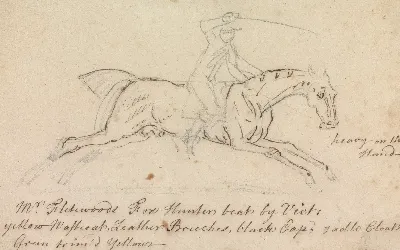 heavy on the
Hand
Mr. Fleetwoods Fox Hunter beat by Vict:
yellow Wastcoat, Leather Breeches, black Cap, Saddle Cloath
Green trim'd Yellow